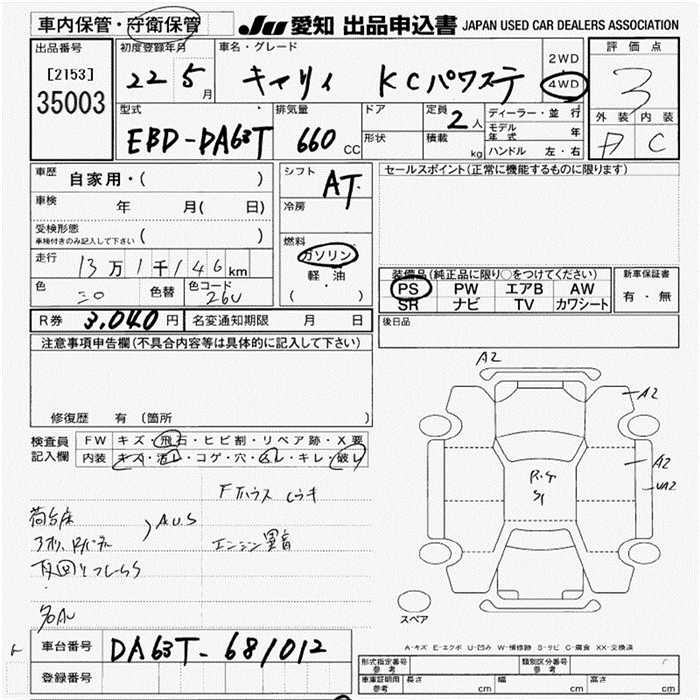 車内保管・守衛保管
JU 愛知 出品申込書 JAPAN USED CAR DEALERS ASSOCIATION
出品番号
[2153]
35003
初度登録年月
22 5月
車名・グレード
キャリィ KCパワステ
2WD
4WD
評価点
3
外装 内装
D C
型式
EBD-DA63T
排気量
660 CC
ドア
形状
定員
2人
積載
kg
ディーラー・並行
モデル年式 年
ハンドル 左・右
車歴 自家用・( )
車検 年 月( 日)
受検形態
車検付きのみ記入して下さい ( )
走行 13万1千146km
色 色替 色コード 26U
シフト AT
冷房
燃料
ガソリン
軽・油
( )
セールスポイント(正常に機能するものに限ります)
装備品(純正品に限り○をつけてください)
PS PW エアB AW
SR ナビ TV カワシート
新車保証書
有・無
R券 3,040円 名変通知期限 月 日
後日品
注意事項申告欄(不具合内容等は具体的に記入して下さい)
修復歴 有(箇所 )
検査員記入欄
FW キズ・飛石・ヒビ割・リペア跡・X要
内装 キズ・汚レ・コゲ・穴・ムレ・キレ・破レ
荷台床
A.U.S
エンジン異音
A2
A2
A2
UA2
R.G
S1
スペア
A-キズ E-エクボ U-凹み W-補修跡 S-サビ C-腐食 XX-交換済
車台番号 DA63T-681012
登録番号
形式指定番号 参考
類別区分番号 参考
車庫証明用 参考
長さ cm 幅 cm 高さ cm